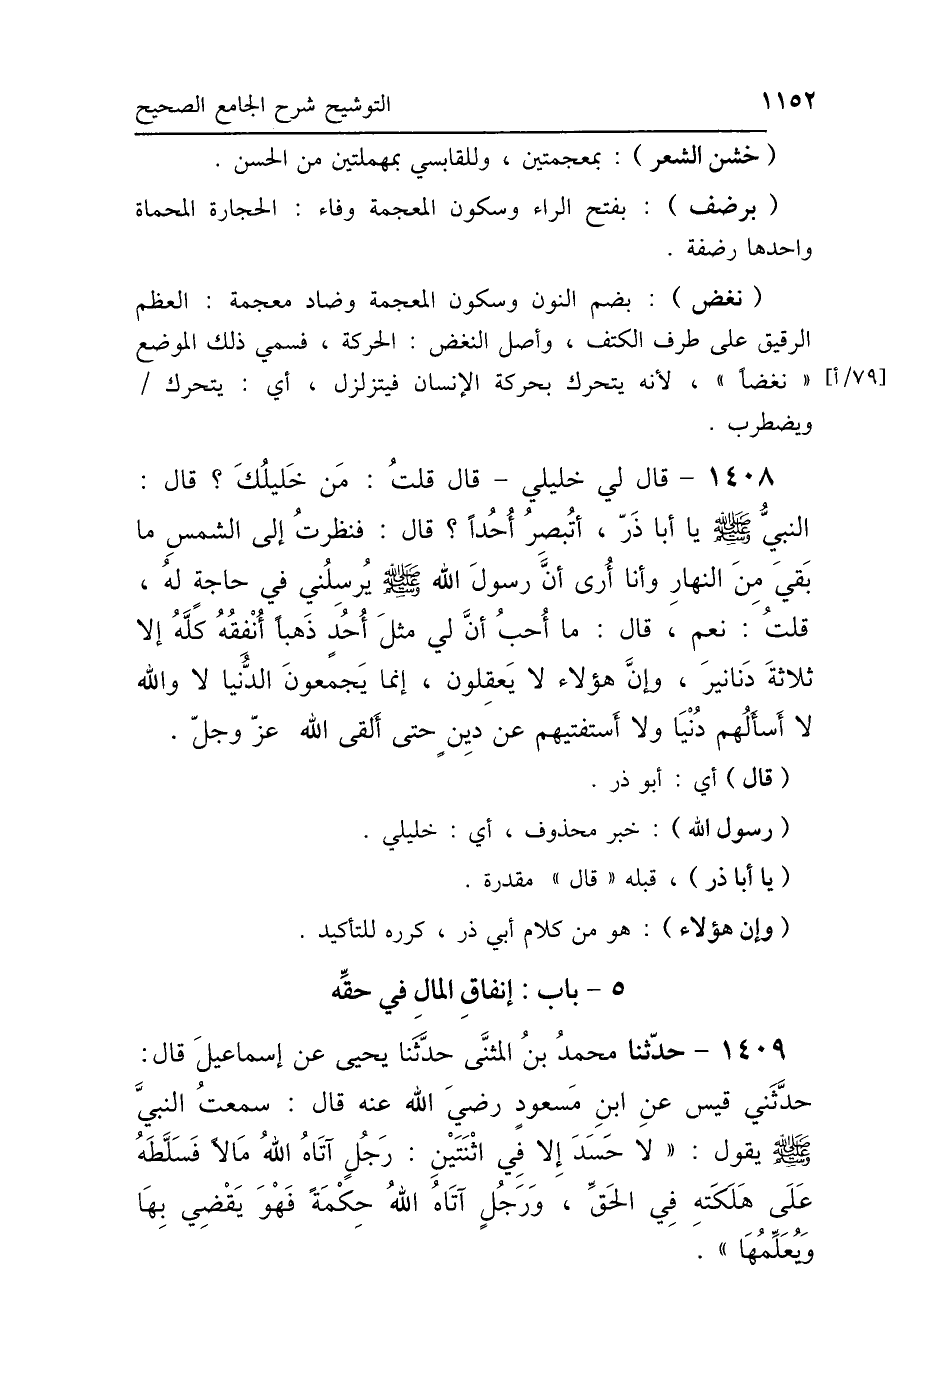 ١١٥٢ التوشيح شرح الجامع الصحيح
( خشن الشعر ) : بمعجمتين ، وللقابسي بمهملتين من الحسن .
( برضف ) : بفتح الراء وسكون المعجمة وفاء : الحجارة المحماة
واحدها رضفة .
( نغض ) : بضم النون وسكون المعجمة وضاد معجمة : العظم
الرقيق على طرف الكتف ، وأصل النغض : الحركة ، فسمي ذلك الموضع
[٧٩/أ] « نغضاً » ، لأنه يتحرك بحركة الإنسان فيتزلزل ، أي : يتحرك /
ويضطرب .
١٤٠٨ - قال لي خليلي - قال قلتُ : مَن خَليلُكَ ؟ قال :
النبيُّ ﷺ يا أبا ذَرّ ، أتُبصِرُ أُحُداً ؟ قال : فنظرتُ إلى الشمسِ ما
بَقيَ مِنَ النهارِ وأنا أُرى أنَّ رسولَ الله ﷺ يُرسِلُني في حاجةٍ لهُ ،
قلتُ : نعم ، قال : ما أُحبُ أنَّ لي مثلَ أُحُدٍ ذَهباً أُنْفِقُهُ كلَّهُ إلا
ثلاثةَ دَنانيرَ ، وإنَّ هؤلاء لا يَعقِلون ، إنما يَجمعونَ الدُّنيا لا والله
لا أسأَلُهم دُنْيَا ولا أَستفتيهم عن دينٍ حتى أَلقى الله عزّ وجلّ .
( قال ) أي : أبو ذر .
( رسول الله ) : خبر محذوف ، أي : خليلي .
( يا أبا ذر ) ، قبله « قال » مقدرة .
( وإن هؤلاء ) : هو من كلام أبي ذر ، كرره للتأكيد .
٥ - باب : إنفاقِ المالِ في حقِّه
١٤٠٩ - حدّثنا محمدُ بنُ المثنَّى حدَّثَنا يحيى عن إسماعيلَ قال:
حدَّثَني قيس عنِ ابنِ مَسعودٍ رضيَ الله عنه قال : سمعتُ النبيَّ
ﷺ يقول : « لا حَسَدَ إِلا فِي اثْنَتَيْنِ : رَجُلٍ آتَاهُ اللهُ مَالاً فَسَلَّطَهُ
عَلَى هَلَكَتهِ فِي الحَقِّ ، وَرَجُلٍ آتَاهُ اللهُ حِكْمَةً فَهْوَ يَقْضِي بِهَا
وَيُعَلِّمُهَا » .